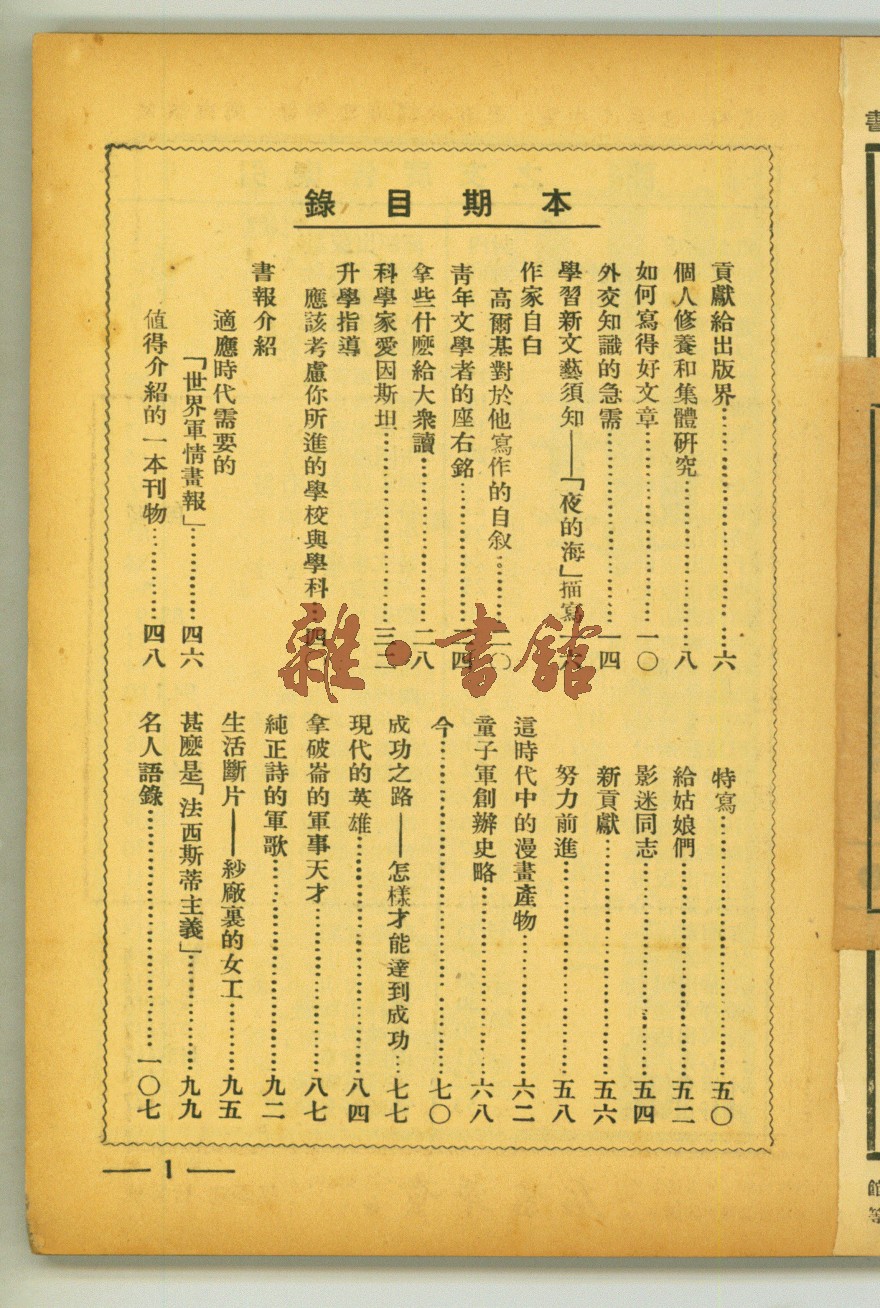 本期目錄
貢獻給出版界……六
個人修養和集體研究……八
如何寫得好文章……一〇
外交知識的急需……一四
學習新文藝須知——「夜的海」描寫 一六
作家自白
高爾基對於他寫作的自叙……二〇
靑年文學者的座右銘……二四
拿些什麼給大衆讀……二八
科學家愛因斯坦……三二
升學指導
應該考慮你所進的學校與學科……四
書報介紹
適應時代需要的
「世界軍情畫報」……四六
値得介紹的一本刊物……四八
特寫……五〇
給姑娘們……五二
影迷同志……五四
新貢獻……五六
努力前進……五八
這時代中的漫畫產物……六二
童子軍創辦史略……六八
今……七〇
成功之路——怎樣才能達到成功……七七
現代的英雄……八四
拿破崙的軍事天才……八七
純正詩的軍歌……九二
生活斷片——紗廠裏的女工……九五
甚麽是「法西斯蒂主義」……九九
名人語錄……一〇七
— 1 —
雜·書館
書
館
等